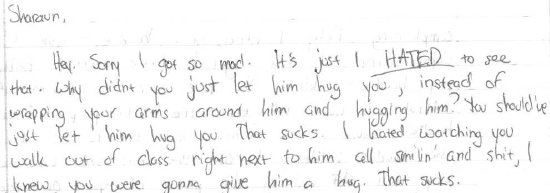 Sharaun,
Hey. Sorry I got so mad. It's just I HATED to see
that. Why didnt you just let him hug you, instead of
wrapping your arms around him and hugging him? You should've
just let him hug you. That sucks. I hated watching you
walk out of class right next to him all smilin' and shit, I
knew you were gonna give him a hug. That sucks.